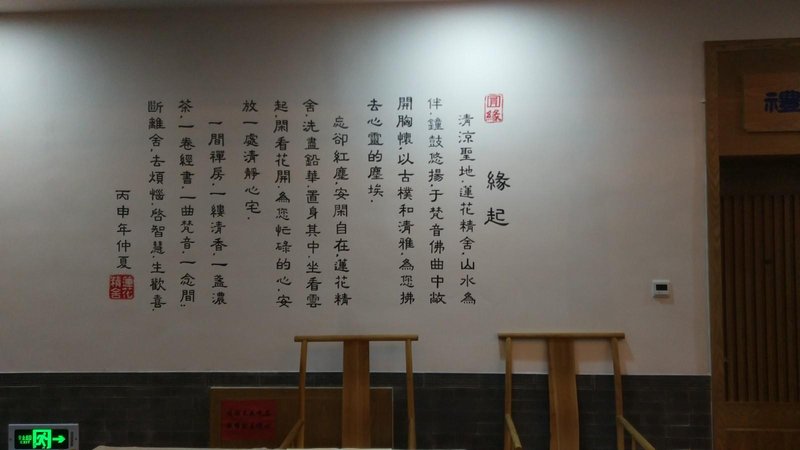 圓緣
緣起
清涼聖地，蓮花精舍，山水為
伴，鐘鼓悠揚，于梵音佛曲中敞
開胸懷，以古樸和清雅，為您拂
去心靈的塵埃。
忘卻紅塵，安閑自在，蓮花精
舍，洗盡鉛華，置身其中，坐看雲
起，閑看花開，為您忙碌的心，安
放一處清靜心宅。
一間禪房，一縷清香，一盞濃
茶，一卷經書，一曲梵音，一念間：
斷離舍，去煩惱，啓智慧，生歡喜。
丙申年仲夏
蓮花精舍
禮
EXIT